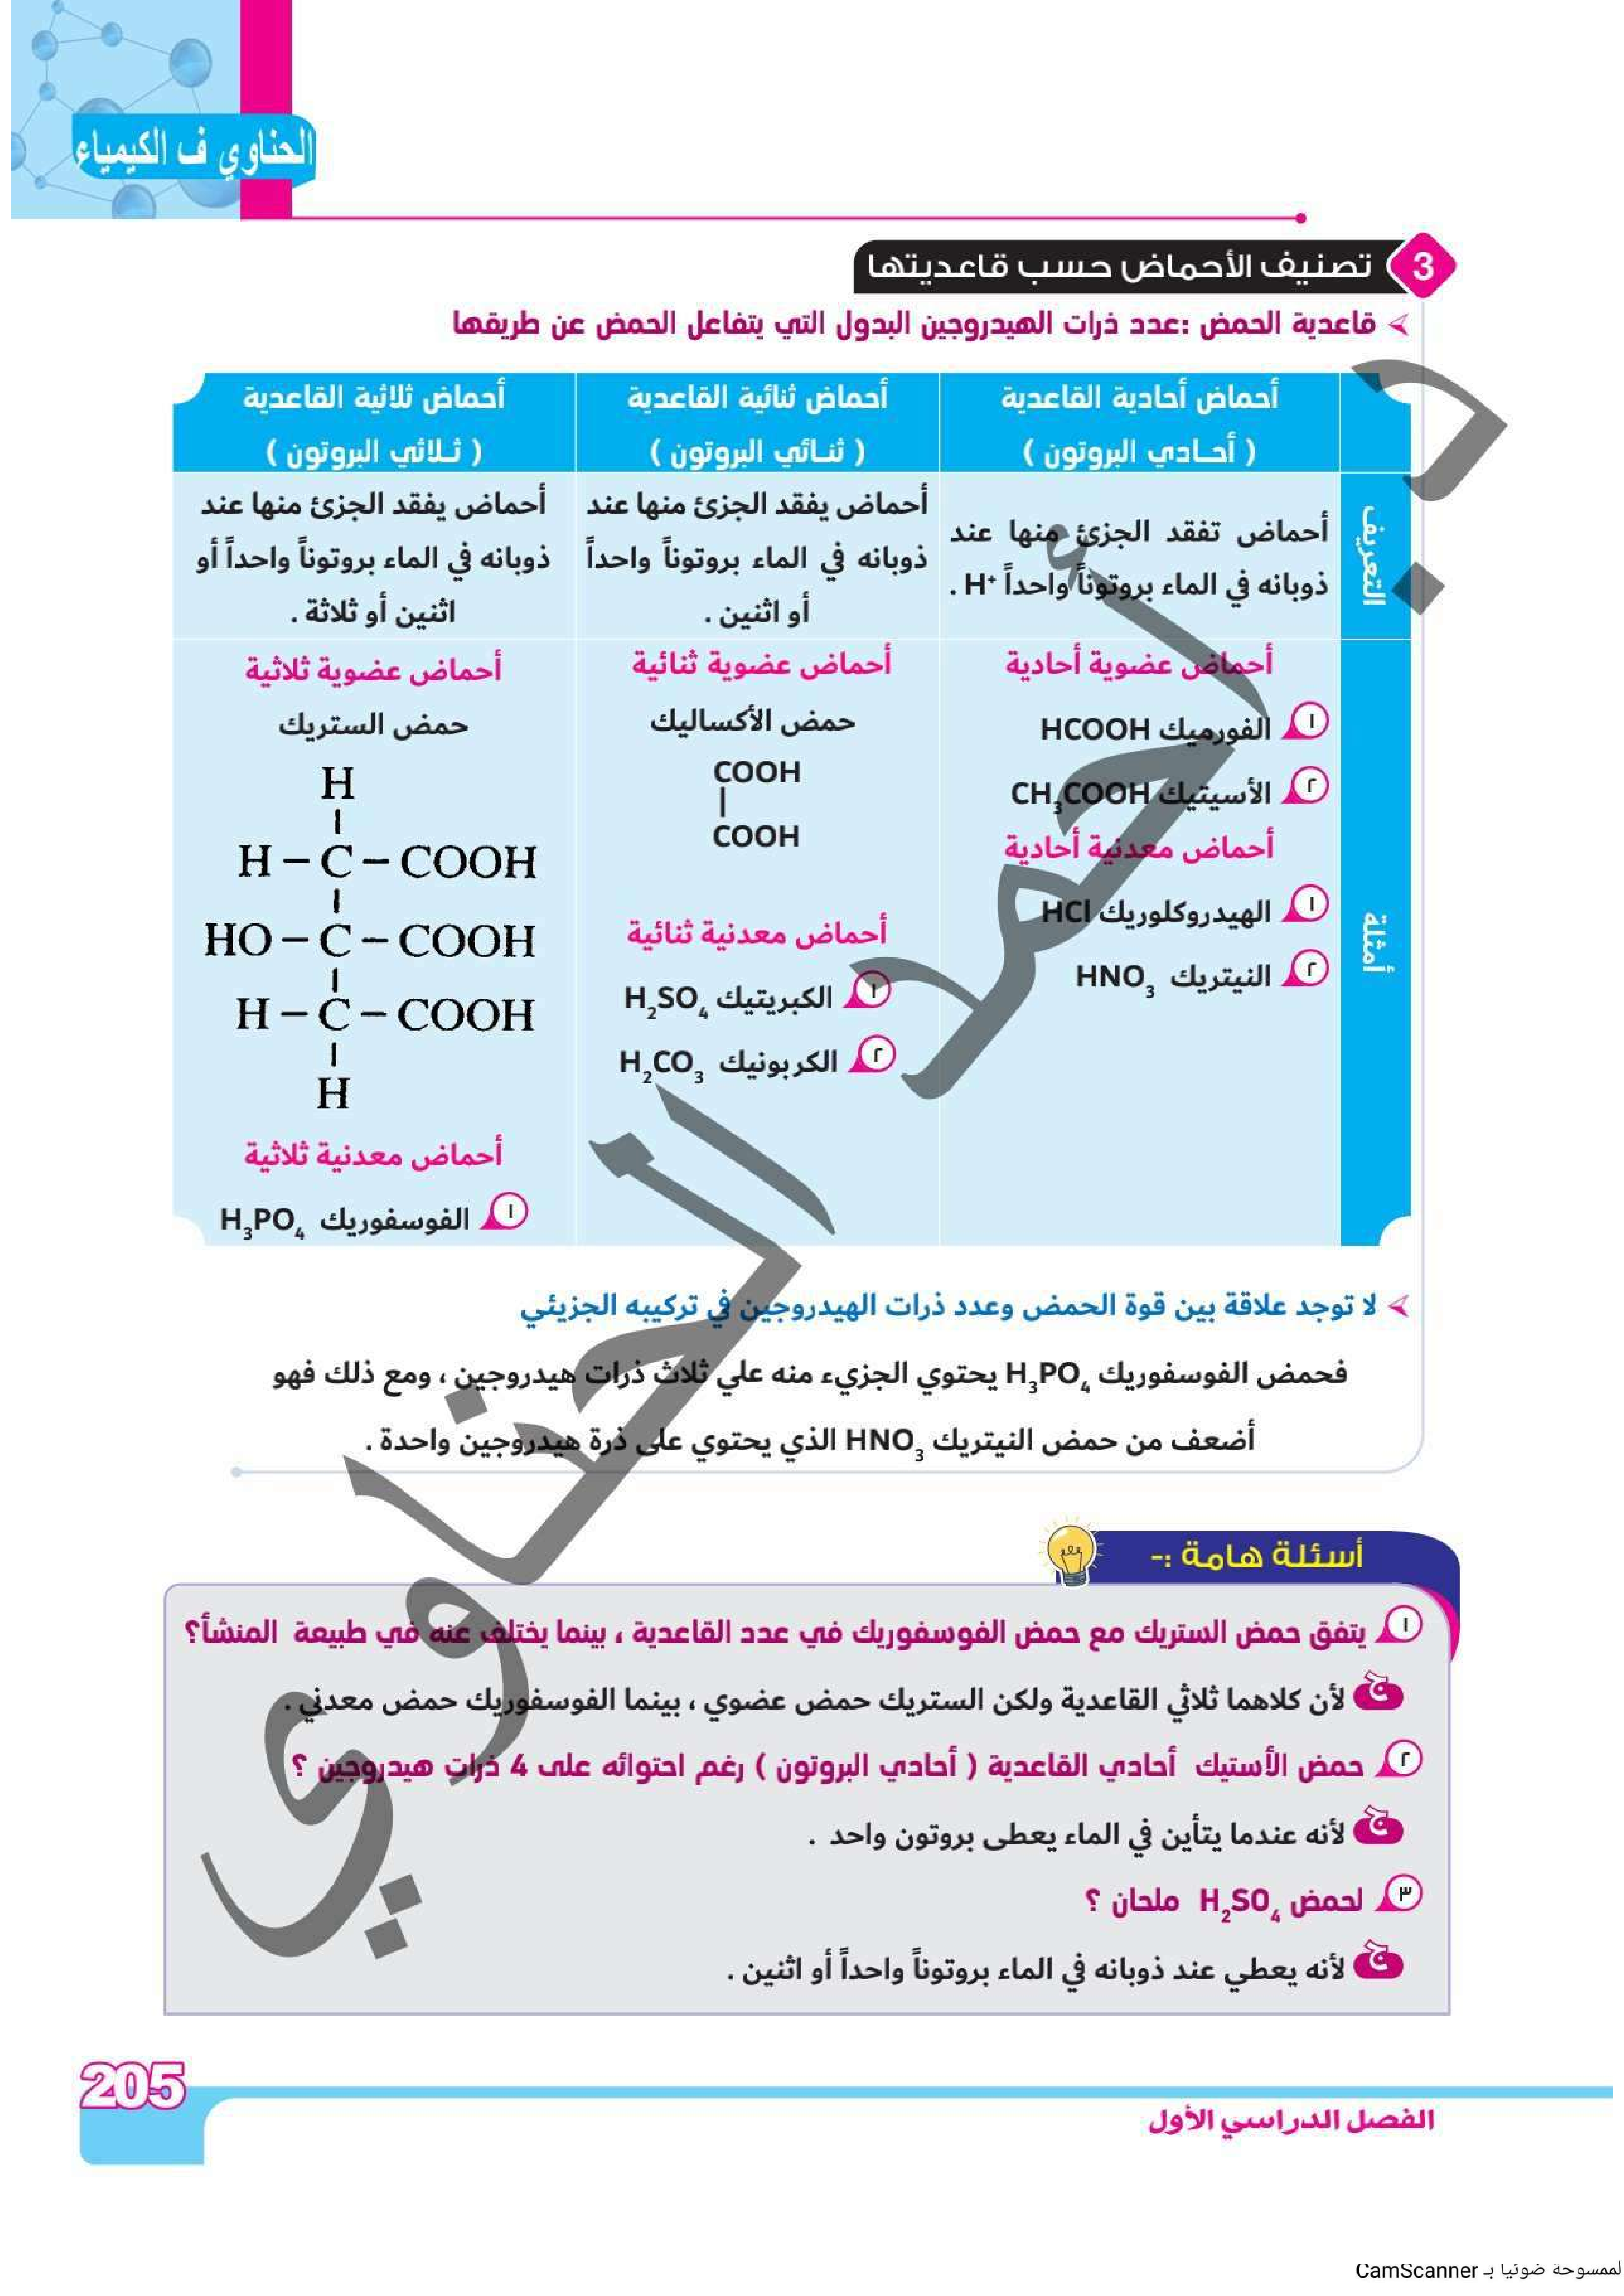 الحناوي ف الكيمياء
3 تصنيف الأحماض حسب قاعديتها
قاعدية الحمض :عدد ذرات الهيدروجين البدول التي يتفاعل الحمض عن طريقها
أحماض أحادية القاعدية
( أحـادي البروتون )
أحماض ثنائية القاعدية
( ثنـائي البروتون )
أحماض ثلاثية القاعدية
( ثـلاثي البروتون )
التعريف
أحماض تفقد الجزئ منها عند
ذوبانه في الماء بروتوناً واحداً H⁺ .
أحماض يفقد الجزئ منها عند
ذوبانه في الماء بروتوناً واحداً
أو اثنين .
أحماض يفقد الجزئ منها عند
ذوبانه في الماء بروتوناً واحداً أو
اثنين أو ثلاثة .
أمثلة
أحماض عضوية أحادية
١ الفورميك HCOOH
٢ الأسيتيك CH₃COOH
أحماض معدنية أحادية
١ الهيدروكلوريك HCl
٢ النيتريك HNO₃
أحماض عضوية ثنائية
حمض الأكساليك
COOH
|
COOH
أحماض معدنية ثنائية
١ الكبريتيك H₂SO₄
٢ الكربونيك H₂CO₃
أحماض عضوية ثلاثية
حمض الستريك
H
|
H – C – COOH
|
HO – C – COOH
|
H – C – COOH
|
H
أحماض معدنية ثلاثية
١ الفوسفوريك H₃PO₄
لا توجد علاقة بين قوة الحمض وعدد ذرات الهيدروجين في تركيبه الجزيئي
فحمض الفوسفوريك H₃PO₄ يحتوي الجزيء منه علي ثلاث ذرات هيدروجين ، ومع ذلك فهو
أضعف من حمض النيتريك HNO₃ الذي يحتوي على ذرة هيدروجين واحدة .
أسئلة هامة :-
١ يتفق حمض الستريك مع حمض الفوسفوريك في عدد القاعدية ، بينما يختلف عنه في طبيعة المنشأ؟
ج لأن كلاهما ثلاثي القاعدية ولكن الستريك حمض عضوي ، بينما الفوسفوريك حمض معدني .
٢ حمض الأستيك أحادي القاعدية ( أحادي البروتون ) رغم احتوائه على 4 ذرات هيدروجين ؟
ج لأنه عندما يتأين في الماء يعطى بروتون واحد .
٣ لحمض H₂SO₄ ملحان ؟
ج لأنه يعطي عند ذوبانه في الماء بروتوناً واحداً أو اثنين .
أ. أحمد الحناوي
205
الفصل الدراسي الأول
لممسوحة ضوئيا بـ CamScanner